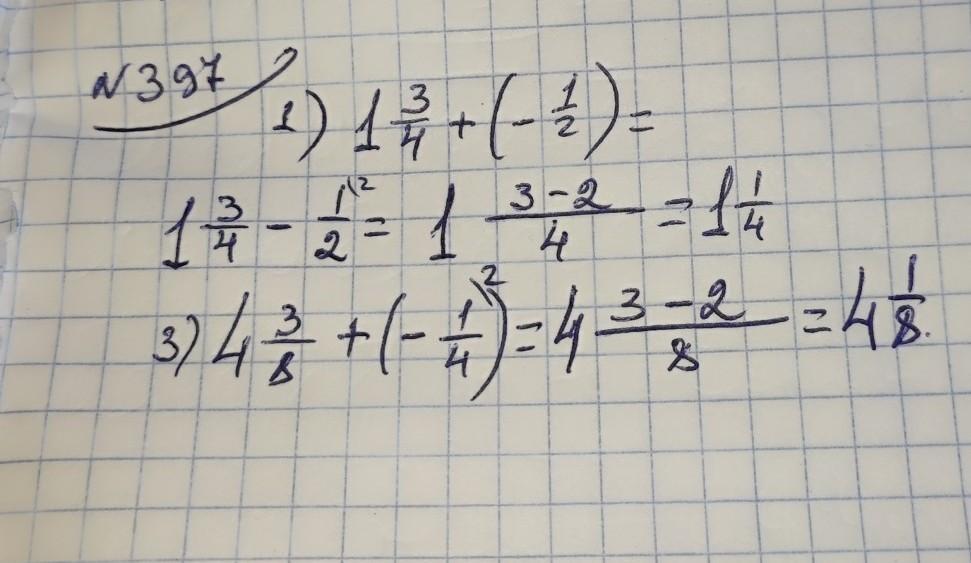 №397
1) 1 3/4 + (- 1/2) =
1 3/4 - 1/2 \2 = 1 (3-2)/4 = 1 1/4
3) 4 3/8 + (- 1/4 \2) = 4 (3-2)/8 = 4 1/8.